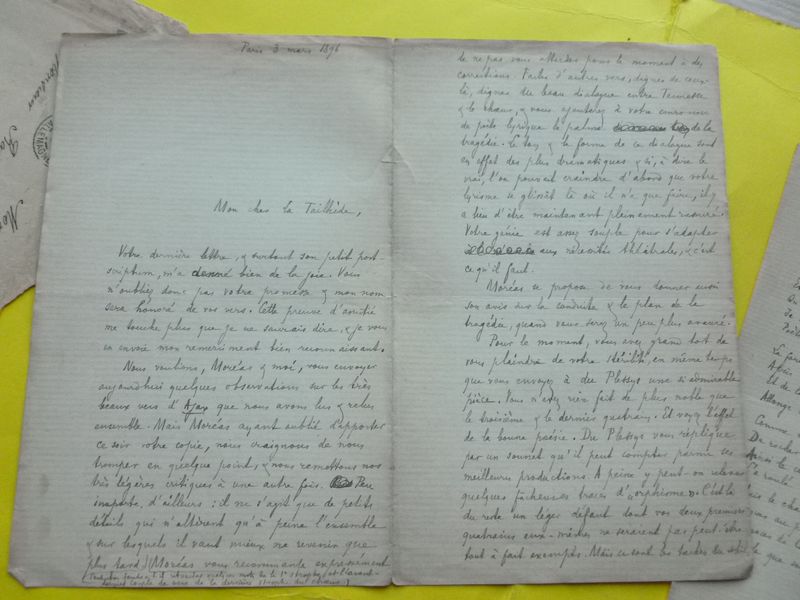 Paris 3 mars 1896
Mon cher La Tailhède,
Votre dernière lettre, & surtout son petit post-
scriptum, m'a donné bien de la joie. Vous
n'oubliez donc pas votre promesse & mon nom
sera honoré de vos vers. Cette preuve d'amitié
me touche plus que je ne saurais dire, & je vous
en envoie mon remerciment bien reconnaissant.
Nous voulions, Moréas & moi, vous envoyer
aujourd'hui quelques observations sur les très
beaux vers d'Ajax que nous avons lus & relus
ensemble. Mais Moréas ayant oublié d'apporter
ce soir votre copie, nous craignons de nous
tromper en quelque point, & nous remettons nos
très légères critiques à une autre fois. Peu
importe, d'ailleurs : il ne s'agit que de petits
détails qui n'altèrent qu'à peine l'ensemble
& sur lesquels il vaut mieux ne revenir que
plus tard. (Moréas vous recommande expressément
de ne pas vous attarder pour le moment à des
corrections. Faites d'autres vers, dignes de ceux-
là, dignes du beau dialogue entre Tecmesse
& le chœur, & vous ajouterez à votre couronne
de poète lyrique la palme de la
tragédie. Le ton & la forme de ce dialogue sont
en effet des plus dramatiques & si, à dire le
vrai, l'on pouvait craindre d'abord que votre
lyrisme se glissât là où il n'a que faire, il y
a lieu d'être maintenant pleinement rassuré.
Votre génie est assez souple pour s'adapter
aux nécessités théâtrales, & c'est
ce qu'il faut.
Moréas se propose de vous donner aussi
son avis sur la conduite & le plan de la
tragédie, quand vous serez un peu plus avancé.
Pour le moment, vous avez grand tort de
vous plaindre de votre stérilité, en même temps
que vous envoyez à du Plessys une si admirable
pièce. Vous n'avez rien fait de plus noble que
le troisième & le dernier quatrain. Et voyez l'effet
de la bonne poésie. Du Plessys vous réplique
par un sonnet qu'il peut compter parmi ses
meilleures productions. A peine y peut-on relever
quelques fâcheuses traces d'« orphisme ». C'est là
du reste un léger défaut dont vos deux premiers
quatrains eux-mêmes ne seraient pas peut-être
tout à fait exempts. Mais ce sont les taches du soleil